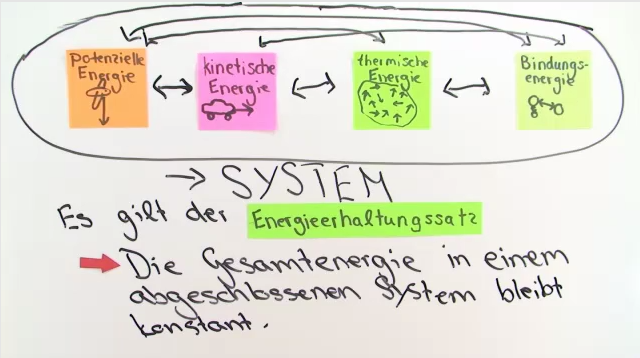 potenzielle
Energie
kinetische
Energie
thermische
Energie
Bindungs-
energie
→ SYSTEM
Es gilt der Energieerhaltungssatz
Die Gesamtenergie in einem
abgeschlossenen System bleibt
konstant.